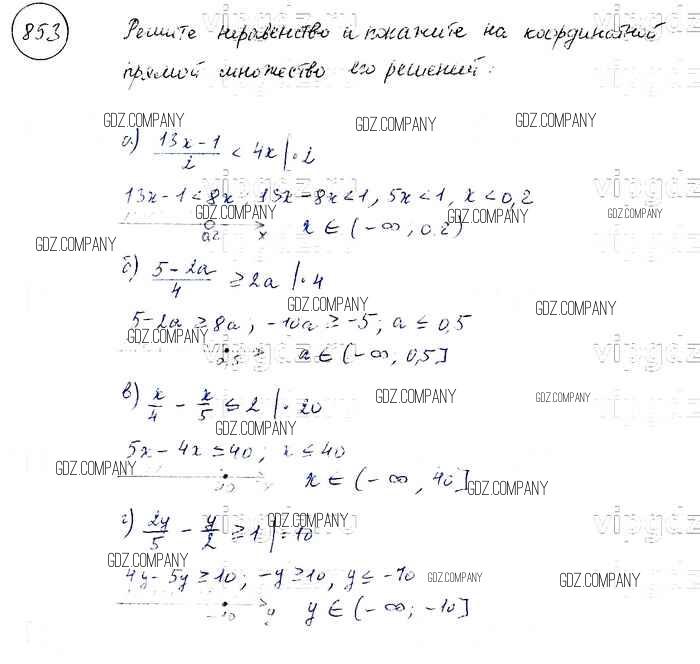 853
Решите неравенство и покажите на координатной
прямой множество его решений:
GDZ.COMPANY GDZ.COMPANY GDZ.COMPANY
а) (13x-1)/2 < 4x |·2
vipgdz.ru vipgdz
13x-1<8x, 13x-8x<1, 5x<1, x<0,2
GDZ.COMPANY GDZ.COMPANY GDZ.COMPANY
0,2 x x ∈ (-∞, 0,2)
GDZ.COMPANY
б) (5-2a)/4 ≥ 2a |·4
GDZ.COMPANY GDZ.COMPANY
5-2a ≥ 8a; -10a ≥ -5; a ≤ 0,5
GDZ.COMPANY
vipgdz.ru vipgdz
0,5 a ∈ (-∞, 0,5]
в) x/4 - x/5 ≤ 2 |·20
GDZ.COMPANY GDZ.COMPANY
GDZ.COMPANY
5x-4x ≤ 40; x ≤ 40
GDZ.COMPANY
x ∈ (-∞, 40]
GDZ.COMPANY
г) 2y/5 - y/2 ≥ 1 |·10
GDZ.COMPANY
vipgdz.ru vipgdz
GDZ.COMPANY
4y-5y ≥ 10; -y ≥ 10, y ≤ -10
GDZ.COMPANY GDZ.COMPANY
-10 y y ∈ (-∞; -10]
GDZ.COMPANY